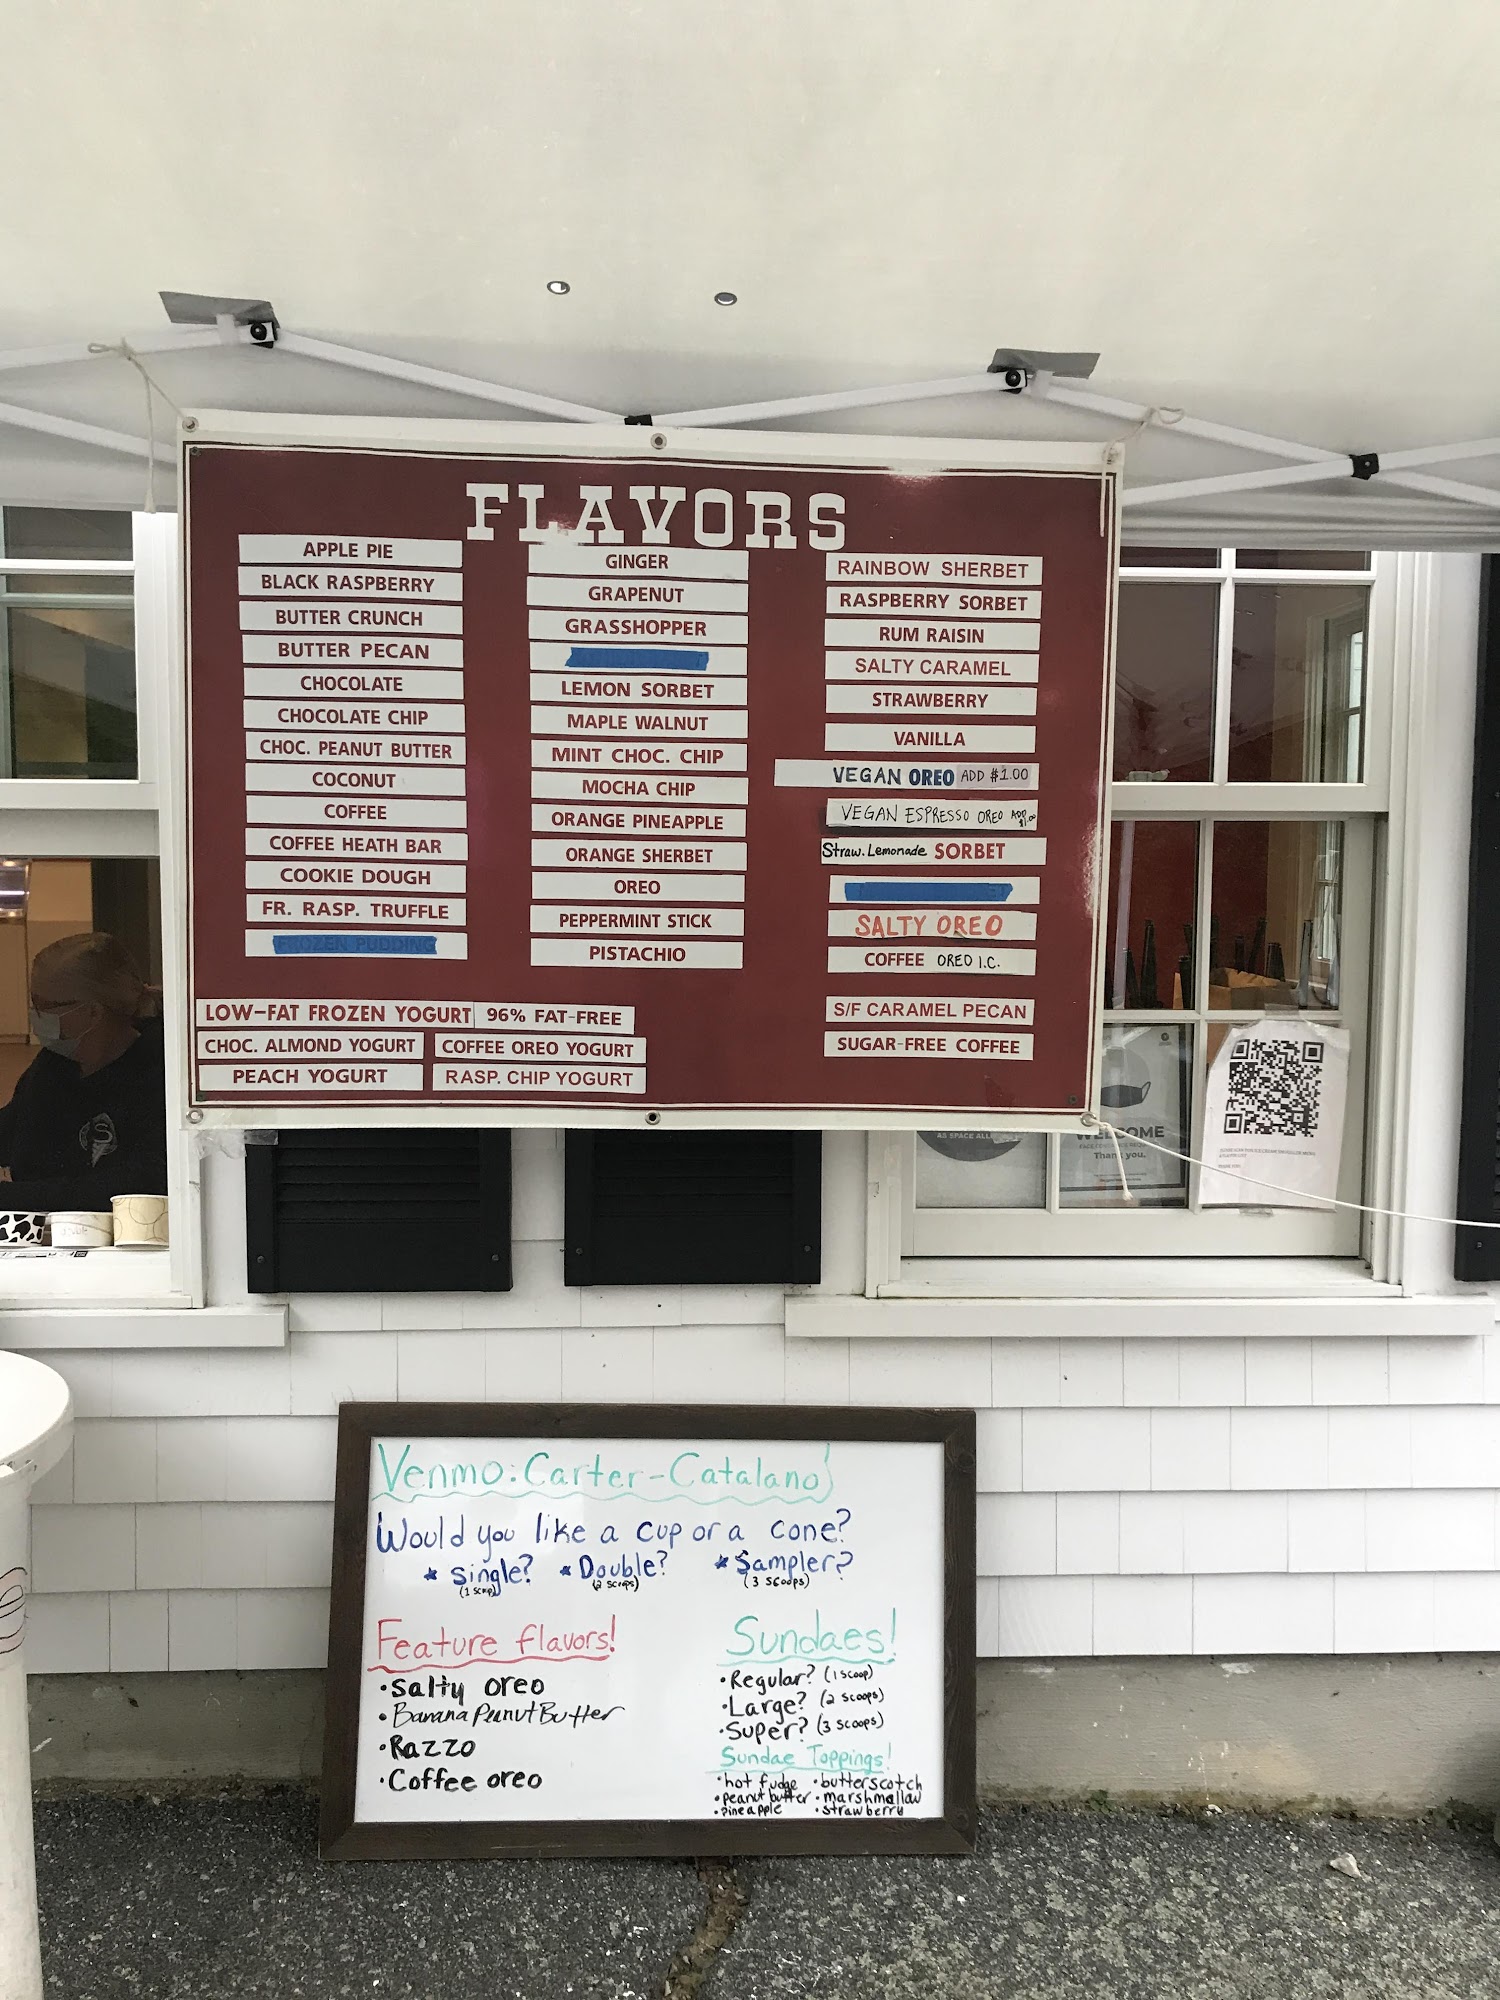 FLAVORS
APPLE PIE
BLACK RASPBERRY
BUTTER CRUNCH
BUTTER PECAN
CHOCOLATE
CHOCOLATE CHIP
CHOC. PEANUT BUTTER
COCONUT
COFFEE
COFFEE HEATH BAR
COOKIE DOUGH
FR. RASP. TRUFFLE
FROZEN PUDDING
GINGER
GRAPENUT
GRASSHOPPER
LEMON SORBET
MAPLE WALNUT
MINT CHOC. CHIP
MOCHA CHIP
ORANGE PINEAPPLE
ORANGE SHERBET
OREO
PEPPERMINT STICK
PISTACHIO
RAINBOW SHERBET
RASPBERRY SORBET
RUM RAISIN
SALTY CARAMEL
STRAWBERRY
VANILLA
VEGAN OREO ADD $1.00
VEGAN ESPRESSO OREO ADD $1.00
Straw. Lemonade SORBET
SALTY OREO
COFFEE OREO I.C.
S/F CARAMEL PECAN
SUGAR-FREE COFFEE
LOW-FAT FROZEN YOGURT 96% FAT-FREE
CHOC. ALMOND YOGURT COFFEE OREO YOGURT
PEACH YOGURT RASP. CHIP YOGURT
AS SPACE
WELCOME
Thank you,
Venmo: Carter-Catalano
Would you like a cup or a cone?
* Single? * Double? * Sampler?
(1 scoop) (2 scoops) (3 scoops)
Feature flavors!
• Salty oreo
• Banana Peanut Butter
• Razzo
• Coffee oreo
Sundaes!
• Regular? (1 scoop)
• Large? (2 scoops)
• Super? (3 scoops)
Sundae Toppings!
• hot fudge • butterscotch
• peanut butter • marshmallow
• pineapple • strawberry